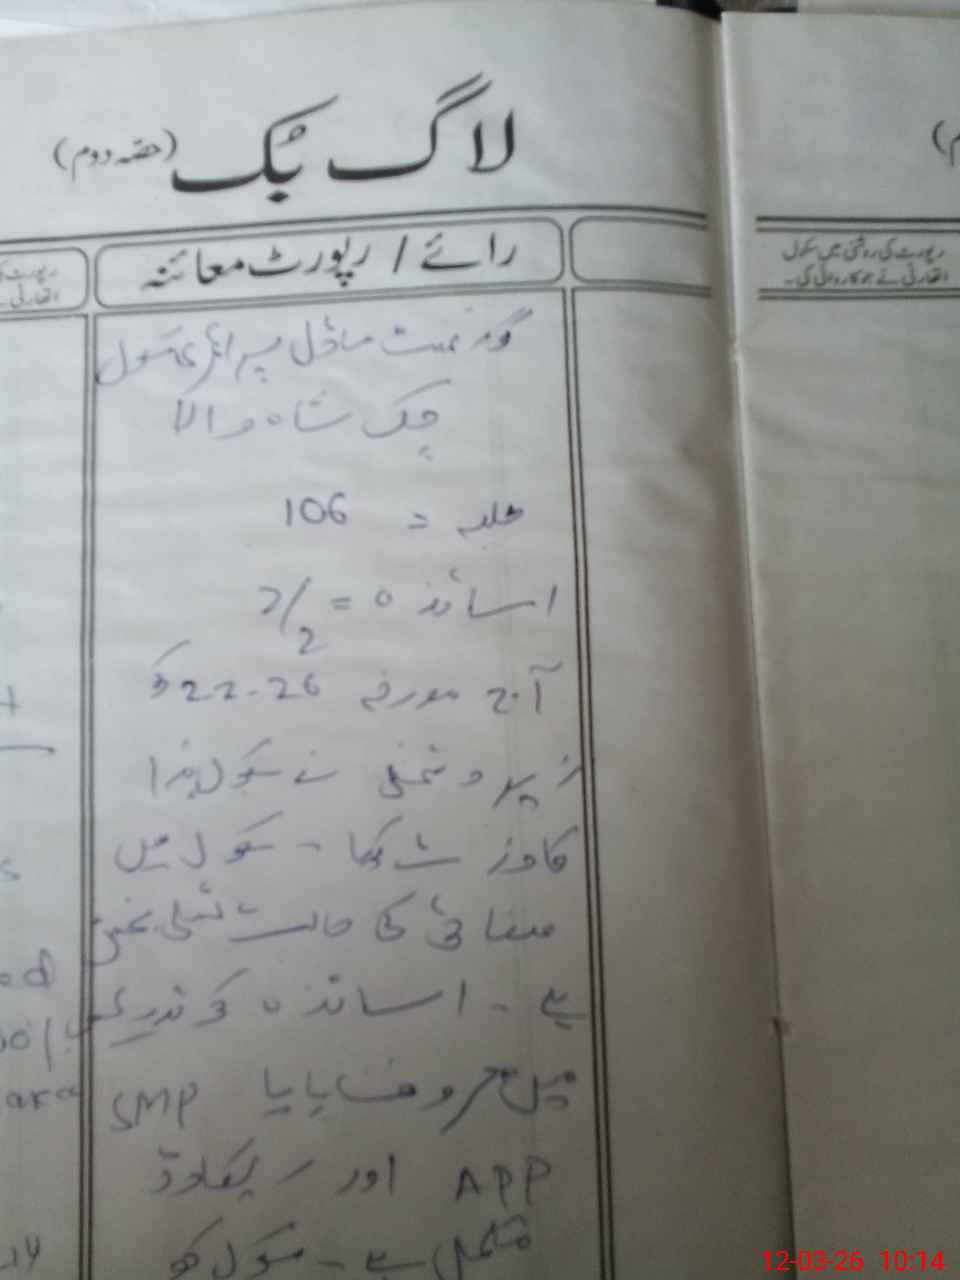 لاگ بُک (حصہ دوم)
رائے / رپورٹ معائنہ
رپورٹ کی روشنی میں سکول
اتھارٹی نے جو کاروائی کی۔
گورنمنٹ ماڈل پرائمری سکول
چک شاہ والا
طلبہ = 106
اساتذہ = 2/2
آج مورخہ
زیر دستخطی نے سکول ہذا
کا وزٹ کیا - سکول میں
صفائی کی حالت تسلی بخش
ہے - اساتذہ کو تدریس
میں مصروف پایا SMP
APP اور ریکارڈ
مکمل ہے - سکول کو
12-03-26 10:14